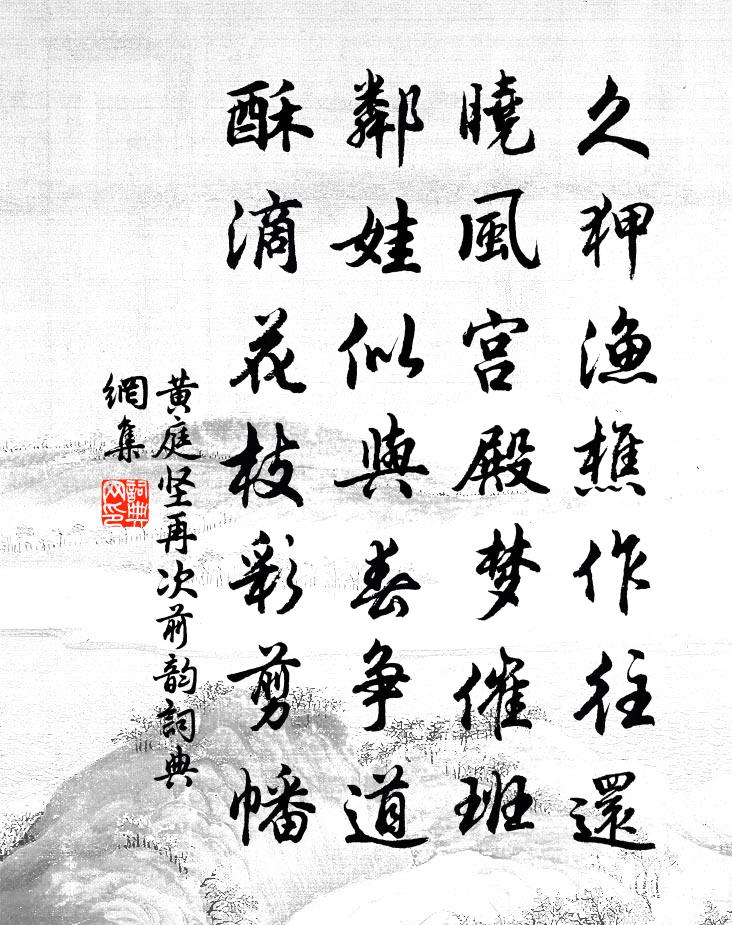 久狎漁樵作往還
曉風宮殿梦催班
鄰娃似與春争道
酥滴花枝彩剪幡
黄庭坚再次前韵詞典
網集
詞典
网印